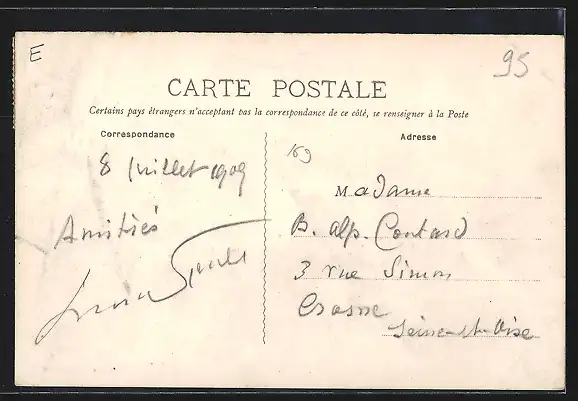 E
95
CARTE POSTALE
Certains pays étrangers n'acceptant pas la correspondance de ce côté, se renseigner à la Poste
Correspondance
Adresse
8 Juillet 1909
169
Madame
Amitiés
B. alp. Coutard
3 rue Simon
Crosne
Seine-et-Oise